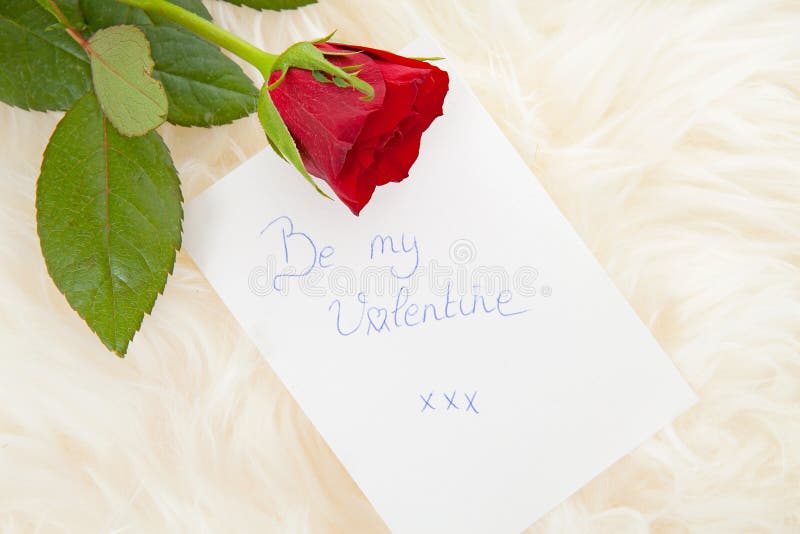 Be my
Valentine
xxx
dreamstime